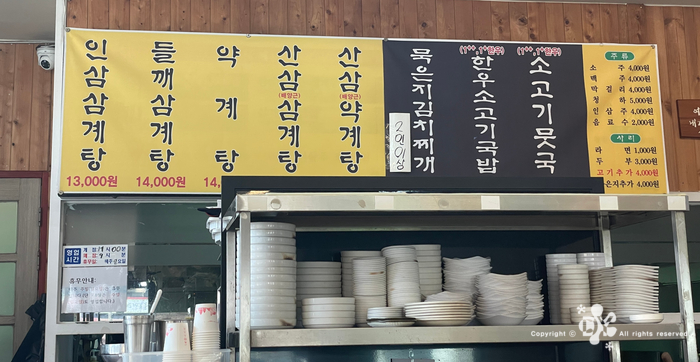 인삼삼계탕
13,000원
들깨삼계탕
14,000원
약계탕
14,
산삼(배양근)삼계탕
산삼(배양근)약계탕
묵은지김치찌개
2인이상
한우소고기국밥
소고기뭇국
주류
소주 4,000원
맥주 4,000원
막걸리 4,000원
청하 5,000원
인삼주 4,000원
음료수 2,000원
사리
라면 1,000원
두부 3,000원
고기추가 4,000원
은지추가 4,000원
영업시간
휴무안내
Copyright © All rights reserved